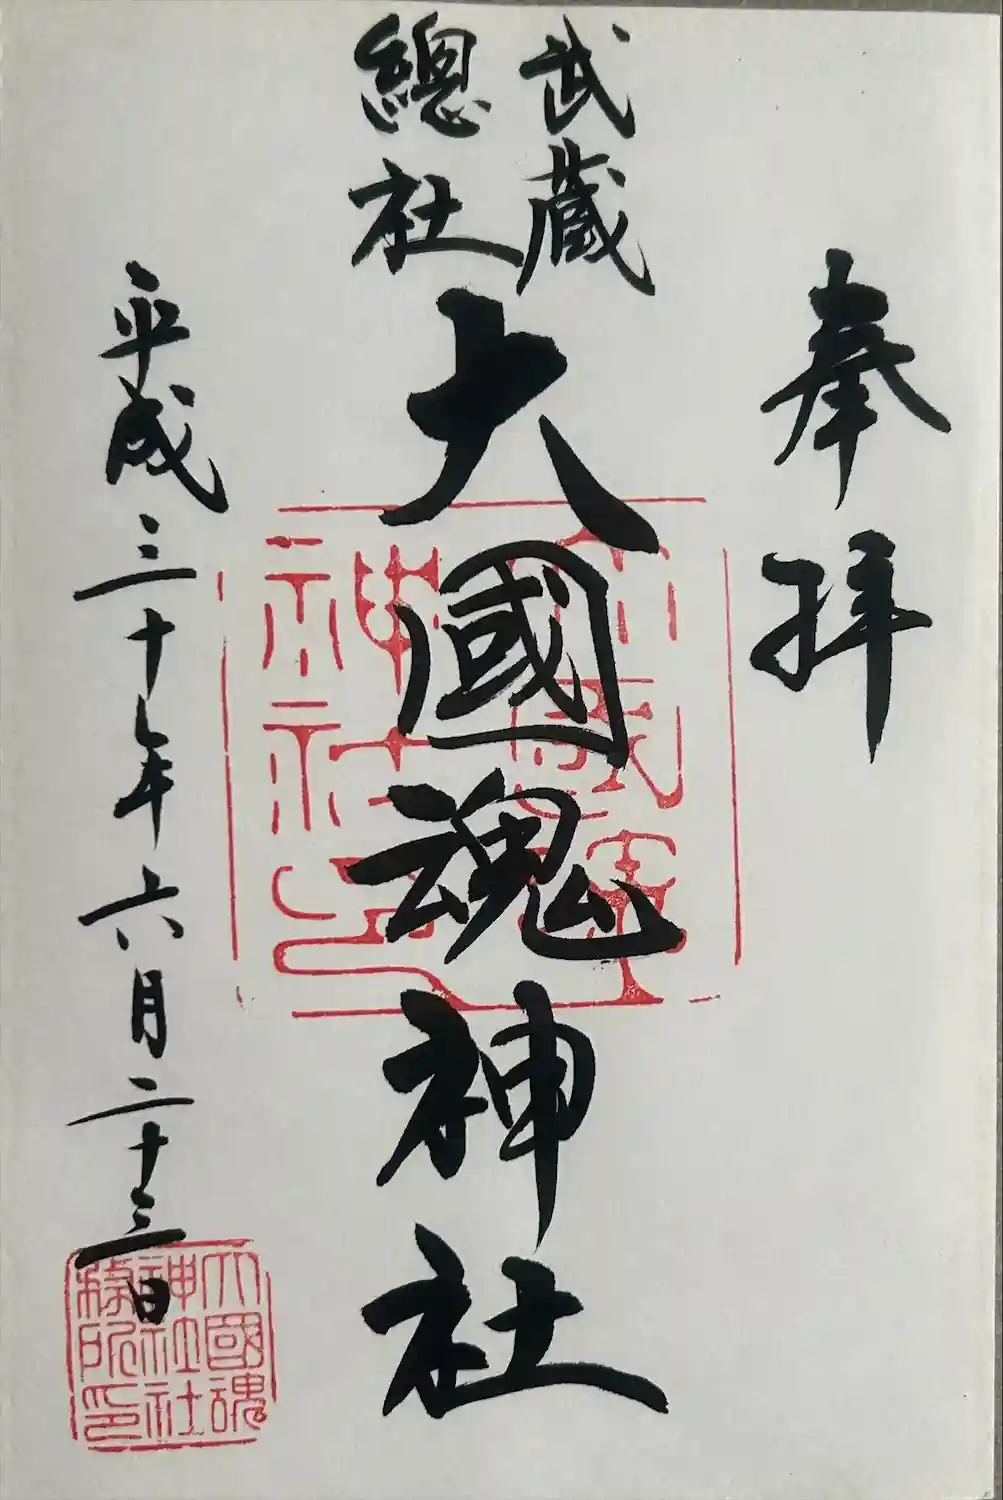 奉拝
武蔵
總社
大國魂神社
平成三十年六月二十三日
大國魂
神社社
務所印